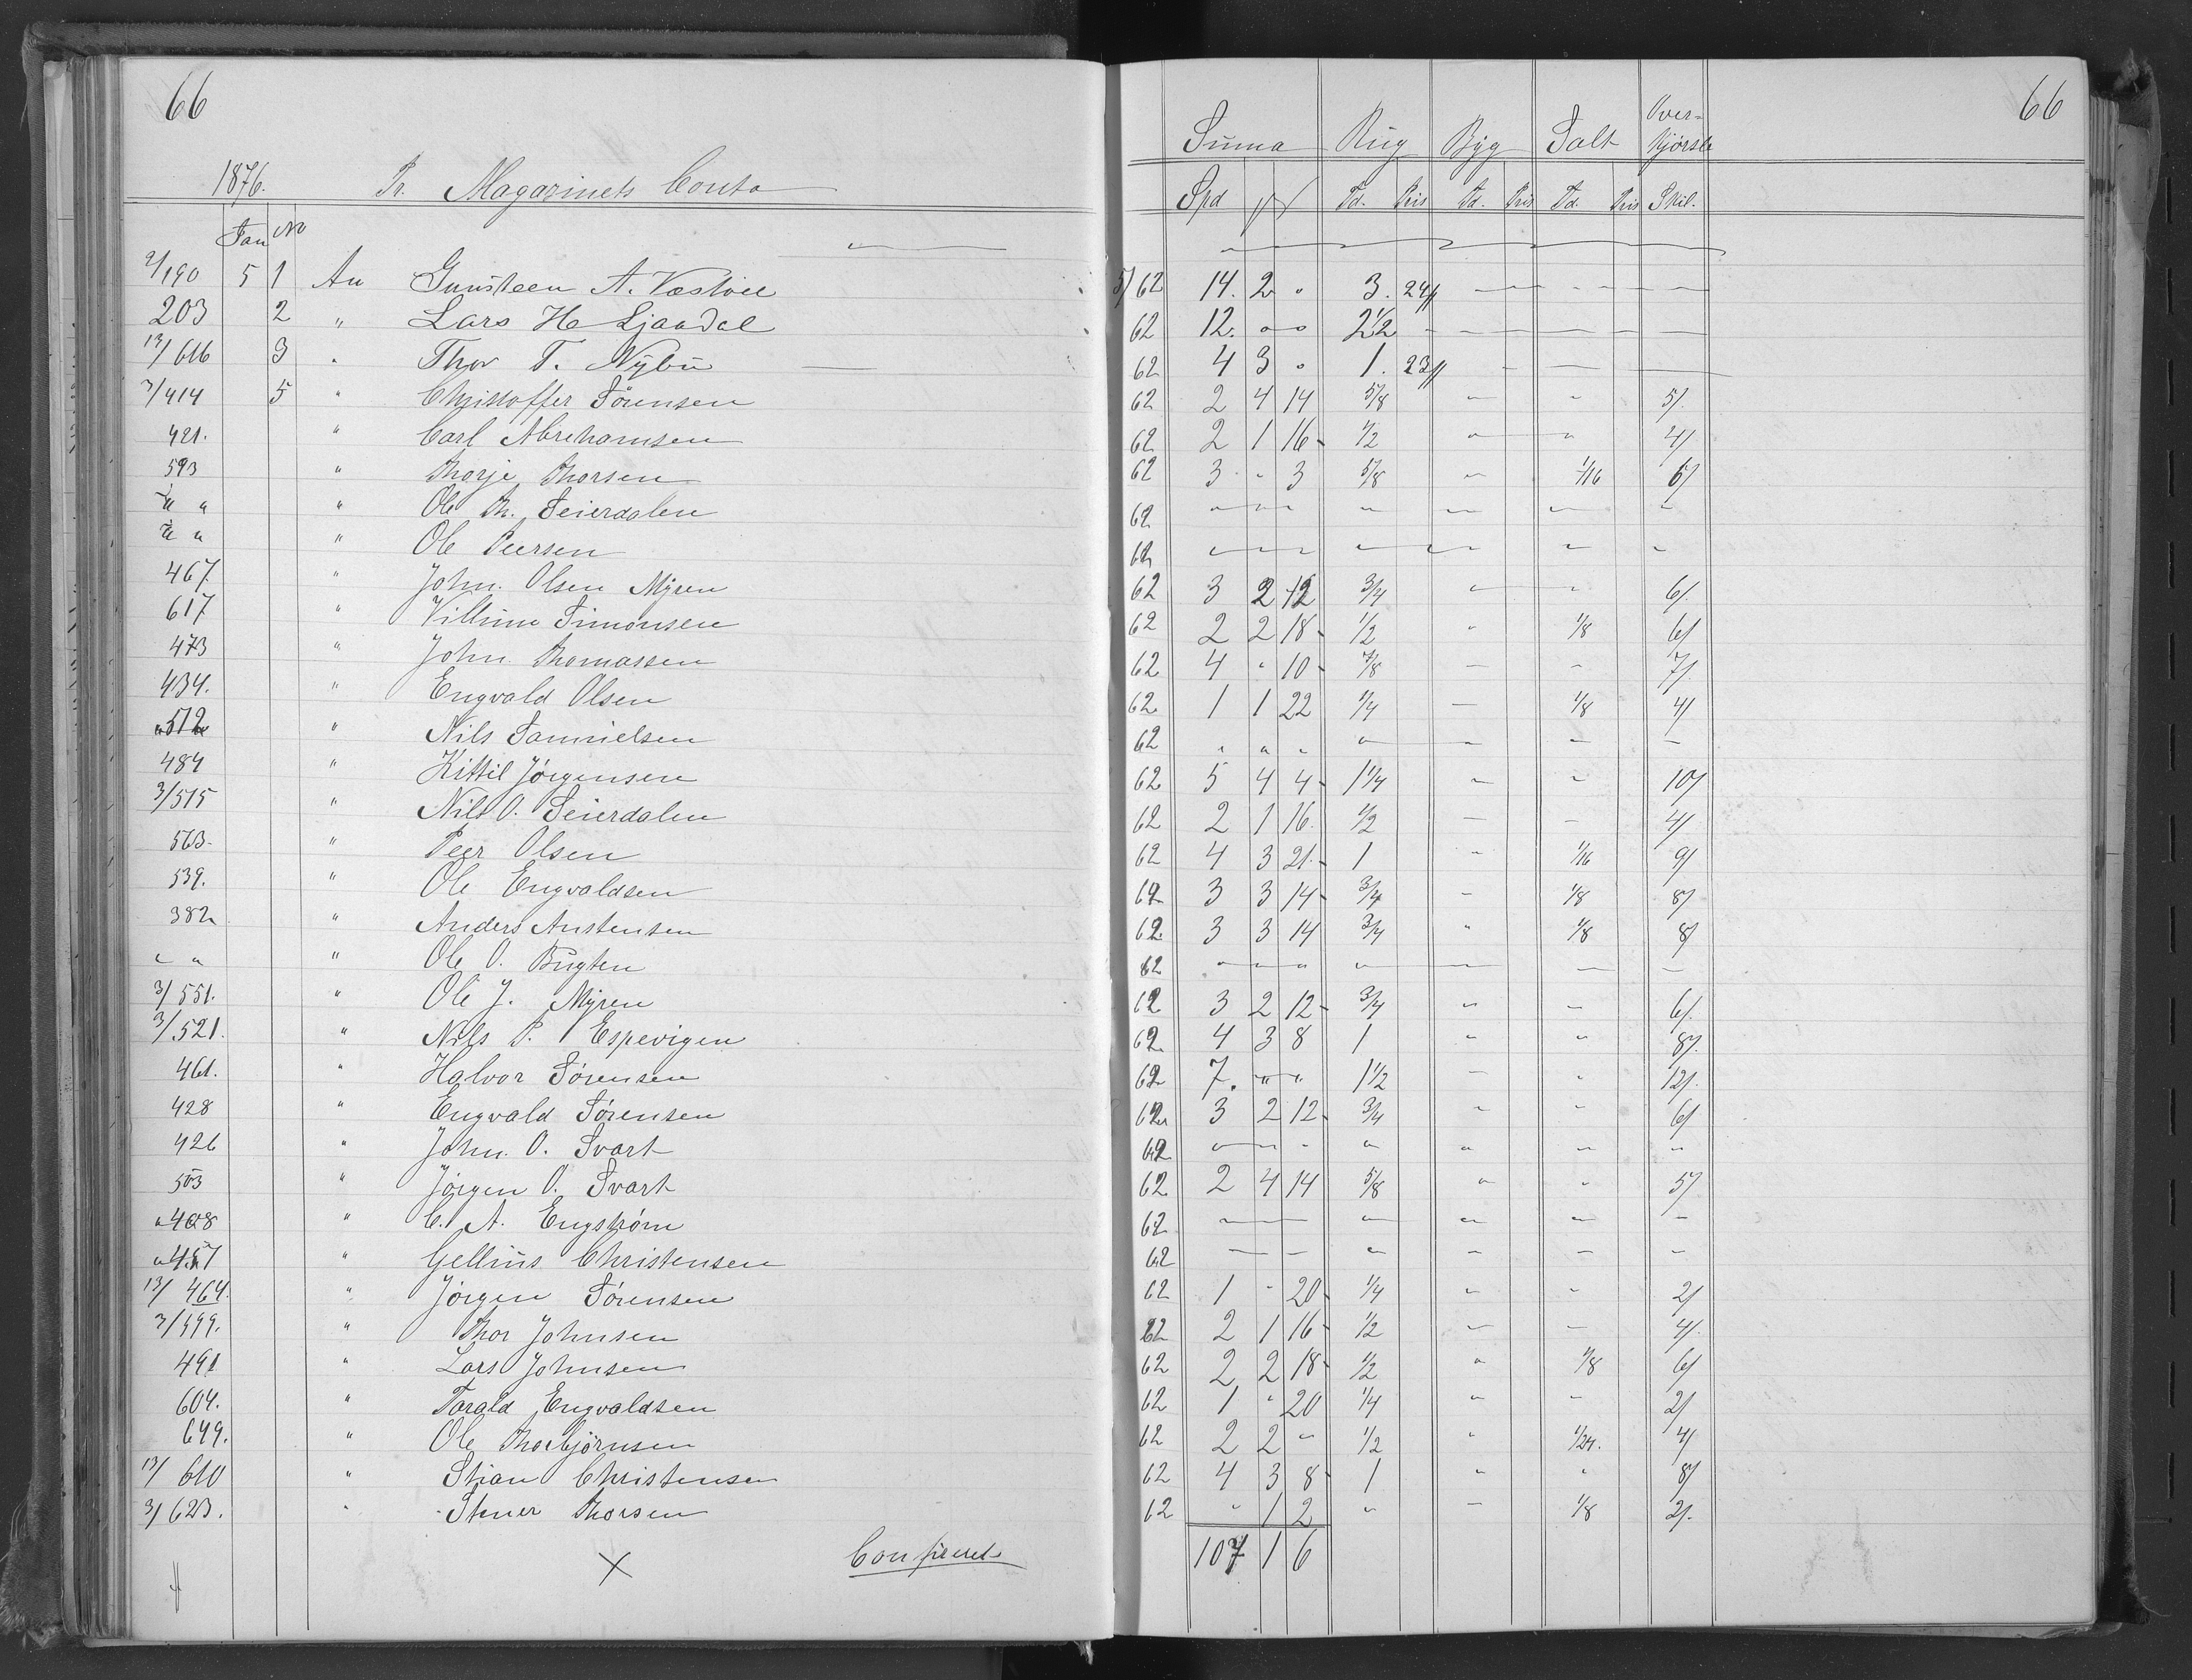 66
1876. Pr. Magazinets Conto
Jan No
2/190 5 1 An Gunsteen A. Væstvee
203 2 " Lars H Ljaadal
13/616 3 " Thor T. Nÿbu
3/414 5 " Christoffer Sörensen
421. " Carl Abrehamsen
593 " Thorje Thorsen
" " " Ole Th. Seierdalen
" " " Ole Peersen
467. " John. Olsen Myren
617 " Villum Simonsen
473 " John. Thomassen
434. " Engvald Olsen
512 " Nils Samuelsen
484 " Kittil Jörgensen
3/515 " Nils O. Seierdalen
563. " Peer Olsen
539. " Ole Engvaldsen
382 " Anders Anstensen
" " " Ole O. Bugten
3/551. " Ole J. Myren
3/521. " Nils P. Espevigen
461. " Halvor Sörensen
428 " Engvald Sörensen
426 " John. O. Svart
503 " Jörgen O. Svart
"408 " C. A. Engström
"457 " Gellius Christensen
13/464. " Jörgen Sörensen
3/499. " Thor Johnsen
491 " Lars Johnsen
604. " Tarald Engvaldsen
649. " Ole Thorbjörnsen
13/610 " Stian Christensen
3/623. " Stener Thorsen
X Confereret
66
Suma Rug Byg Salt Over-
kjörsle
Spd Td. Pris Td. Pris Td. Pris Skil.
5/62 14. 2 " 3. 24
62 12. " " 2 1/2
62 4 3 " 1. 23
62 2 4 14 5/8 " " 5/
62 2 1 16 1/2 " " 4/
62 3 " 3 5/8 " 1/16 6/
62 " " " " " " "
62 " " " " " " "
62 3 2 12 3/4 " " 6/
62 2 2 18 1/2 " 1/8 6/
62 4 " 10 7/8 " " 7/
62 1 1 22 1/4 " 1/8 4/
62 " " " " " " "
62 5 4 4 1 1/4 " " 10/
62 2 1 16 1/2 " " 4/
62 4 3 21 1 " 1/16 9/
62 3 3 14 3/4 " 1/8 8/
62 3 3 14 3/4 " 1/8 8/
62 " " " " " " "
62 3 2 12 3/4 " " 6/
62 4 3 8 1 " " 8/
62 7. " " 1 1/2 " " 12/
62 3 2 12 3/4 " " 6/
62 " " " " " " "
62 2 4 14 5/8 " " 5/
62 " " " " " " "
62 " " " " " " "
62 1 " 20 1/4 " " 2/
62 2 1 16 1/2 " " 4/
62 2 2 18 1/2 " 1/8 6/
62 1 " 20 1/4 " " 2/
62 2 2 " 1/2 " 1/24. 4/
62 4 3 8 1 " " 8/
62 " 1 2 " " 1/8 2/
107 1 6